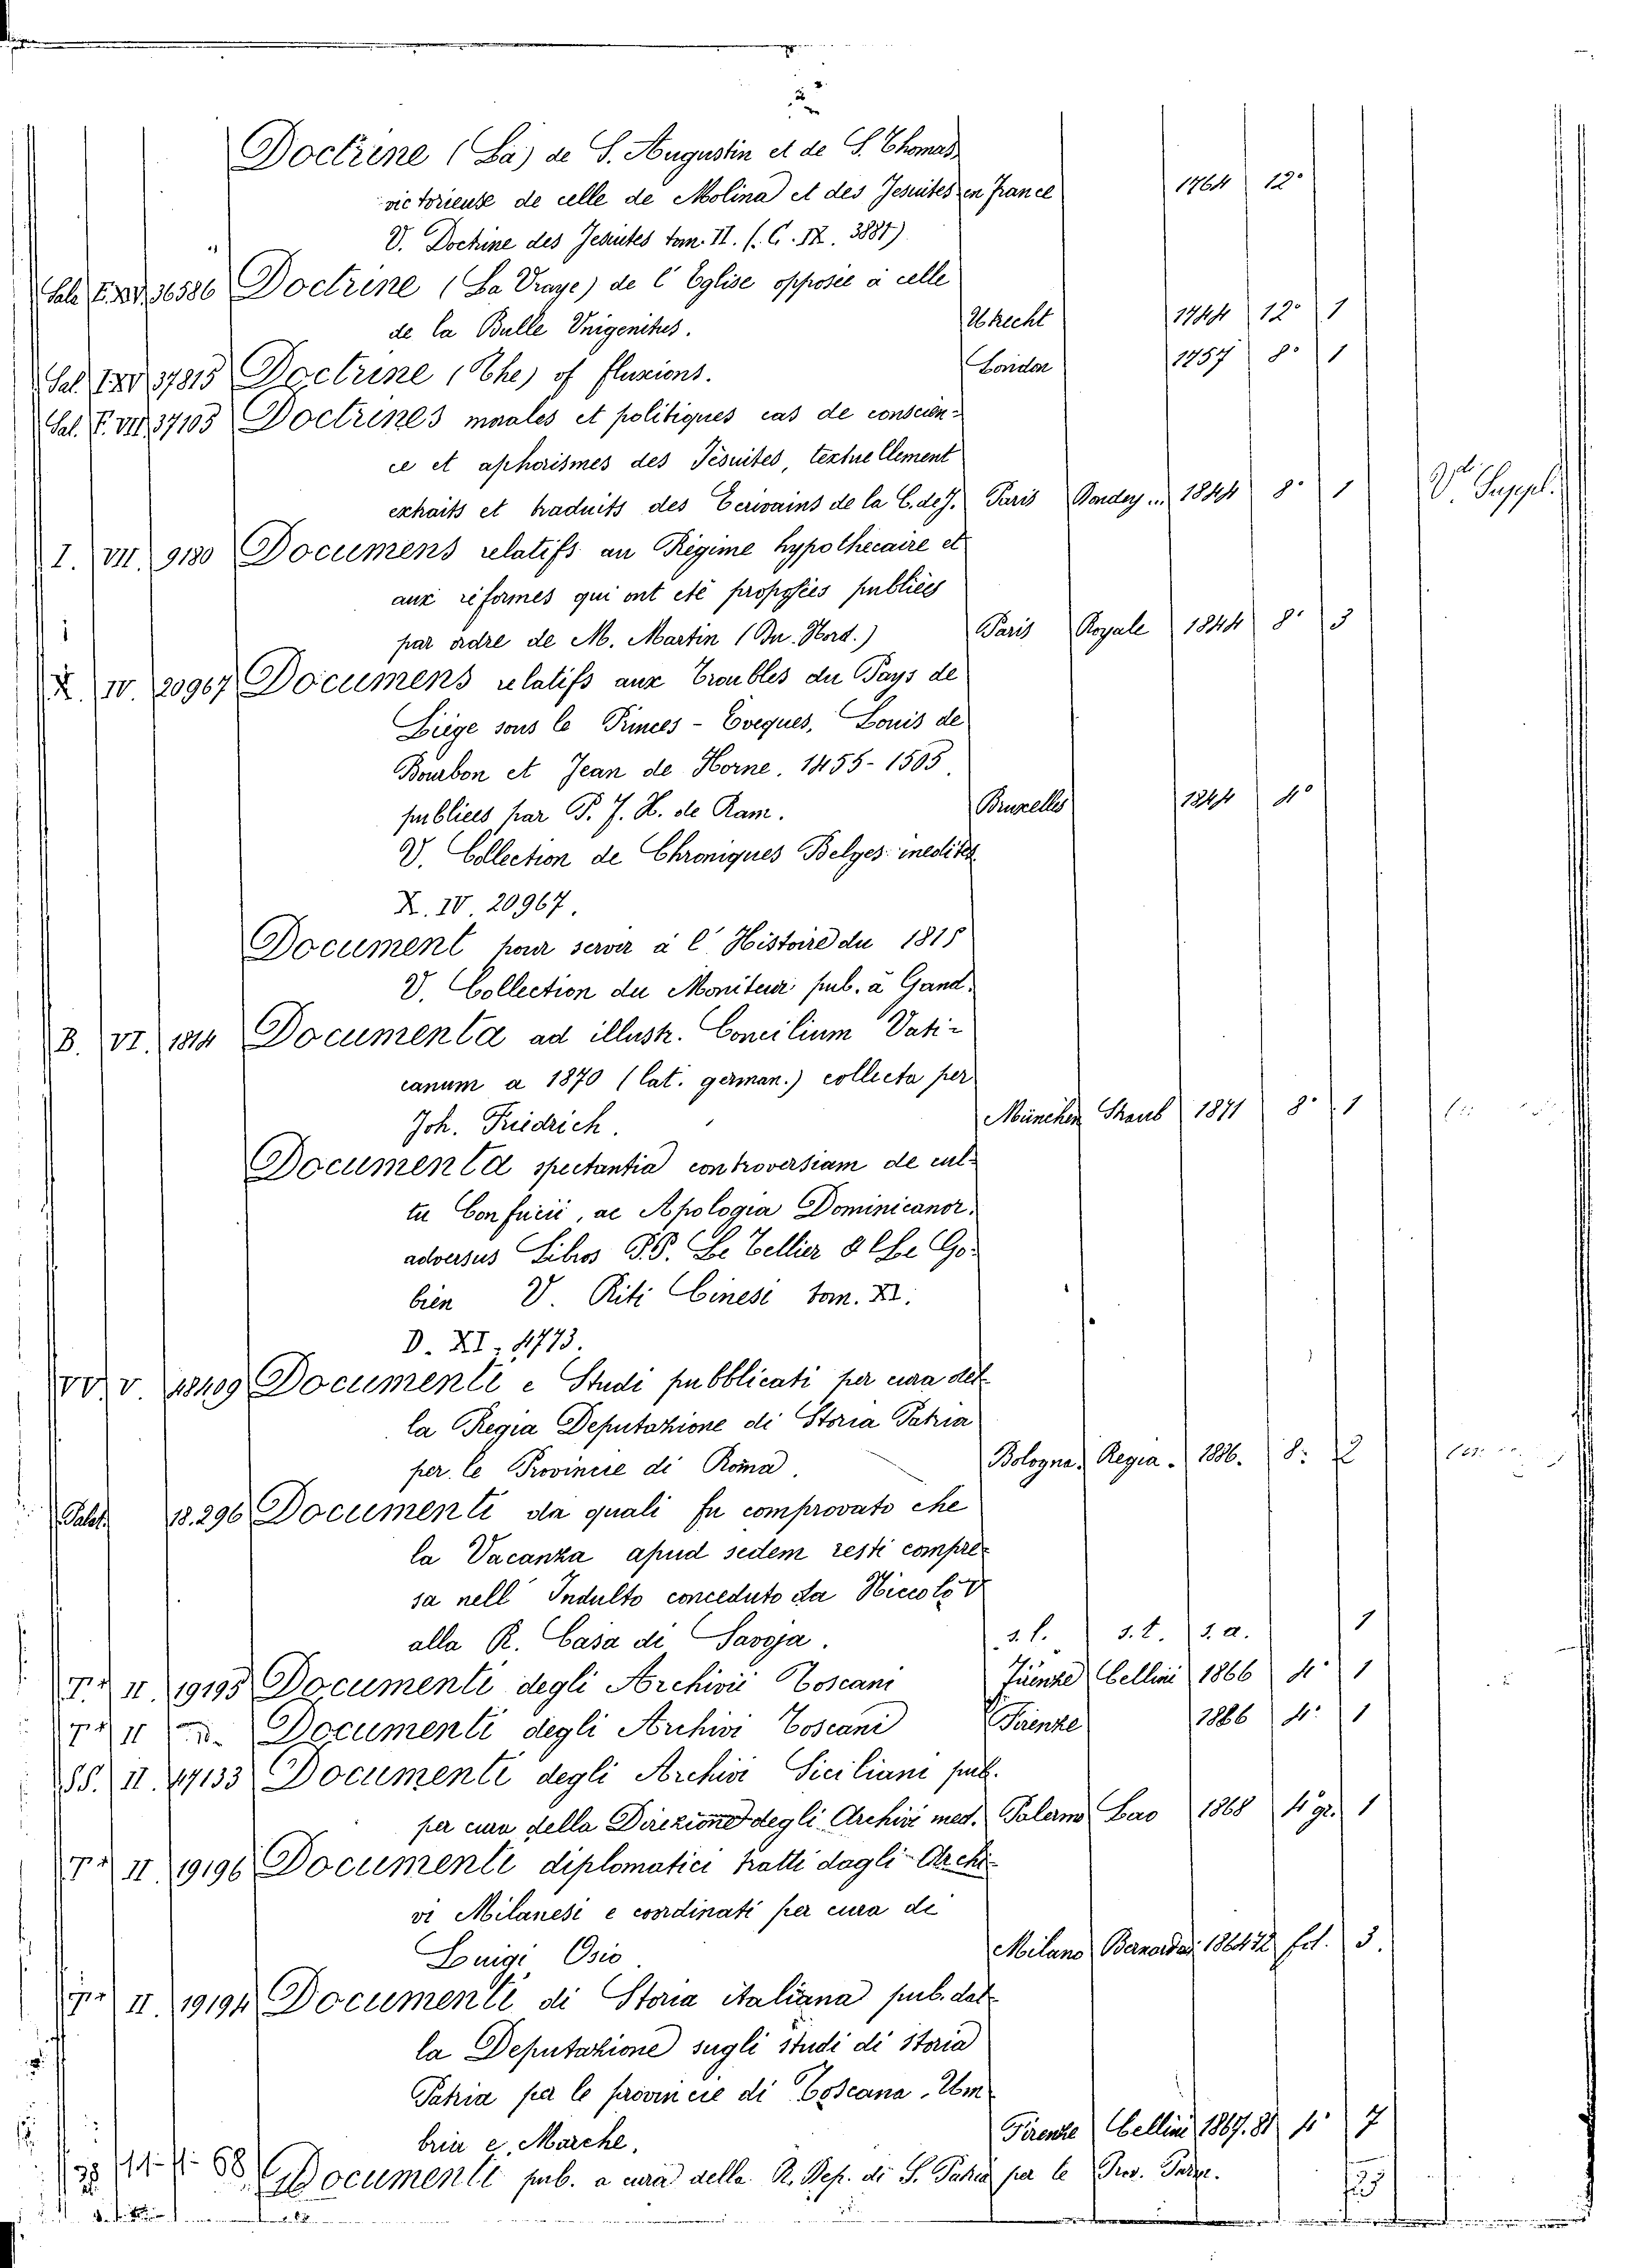 Doctrine (La) de S. Augustin et de S. Thomas
victorieuse de celle de Molina et des Jesuites en France 1764 12°
V. Doctrine des Jesuites tom. II. (C. IX. 3887)
36586 Doctrine (La Vraye) de l'Eglise opposée à celle
de la Bulle Unigenitus. Utrecht 1744 12° 1
37815 Doctrine (The) of fluxions. London 1757 8° 1
Sal. F. VII. 37105 Doctrines morales et politiques cas de conscien-
ce et aphorismes des Jésuites, textuellement
extraits et traduits des Ecrivains de la C. de J. Paris 1844 8° 1 V. Suppl.
I. VII. 9180 Documens relatifs au Régime hypothecaire et
aux réformes qui ont eté proposées publiées
par ordre de M. Martin (Du Nord.) Paris Royale 1844 8° 3
X. IV. 20967 Documens relatifs aux Troubles du Pays de
Liége sous le Princes-Eveques, Louis de
Bourbon et Jean de Horne. 1455-1505.
publiees par P. F. X. de Ram. Bruxelles 1844 4°
V. Collection de Chroniques Belges inedites
X. IV. 20967.
Document pour servir à l'Histoire du 1815
V. Collection du Moniteur pub. à Gand.
B. VI. 1814 Documenta ad illustr. Concilium Vati-
canum a 1870 (lat. german.) collecta per
Joh. Friedrich. München Straub 1871 8° 1
Documenta spectantia controversiam de cul-
tu Confucii, ac Apologia Dominicanor.
adversus Libros P.P. Le Tellier & Le Go-
bien V. Riti Cinesi tom. XI.
D. XI. 4773.
VV. V. 18409 Documenti e Studi pubblicati per cura del-
la Regia Deputazione di Storia Patria
per le Provincie di Roma. Bologna. Regia. 1886. 8: 2
18.296 Documenti da quali fu comprovato che
la Vacanza apud sedem resti compre-
sa nell'Indulto conceduto da Niccolò V
alla R. Casa di Savoja. s. l. s. t. s. a. 1
II. 19195 Documenti degli Archivii Toscani Firenze Cellini 1866 4° 1
II Documenti degli Archivi Toscani Firenze 1886 4° 1
SS. II. 47133 Documenti degli Archivi Siciliani pub.
per cura della Direzione degli Archivi med. Palermo Lao 1868 4° gr. 1
II. 19196 Documenti diplomatici tratti dagli Archi-
vi Milanesi e coordinati per cura di
Luigi Osio. Milano 1864.72 fol. 3.
II. 19194 Documenti di Storia italiana pub. dal-
la Deputazione sugli studi di storia
Patria per le provincie di Toscana, Um-
bria e Marche. Firenze Cellini 1867.81 4° 7
68 Documenti pub. a cura della R. Dep. di S. Patria per le Prov.